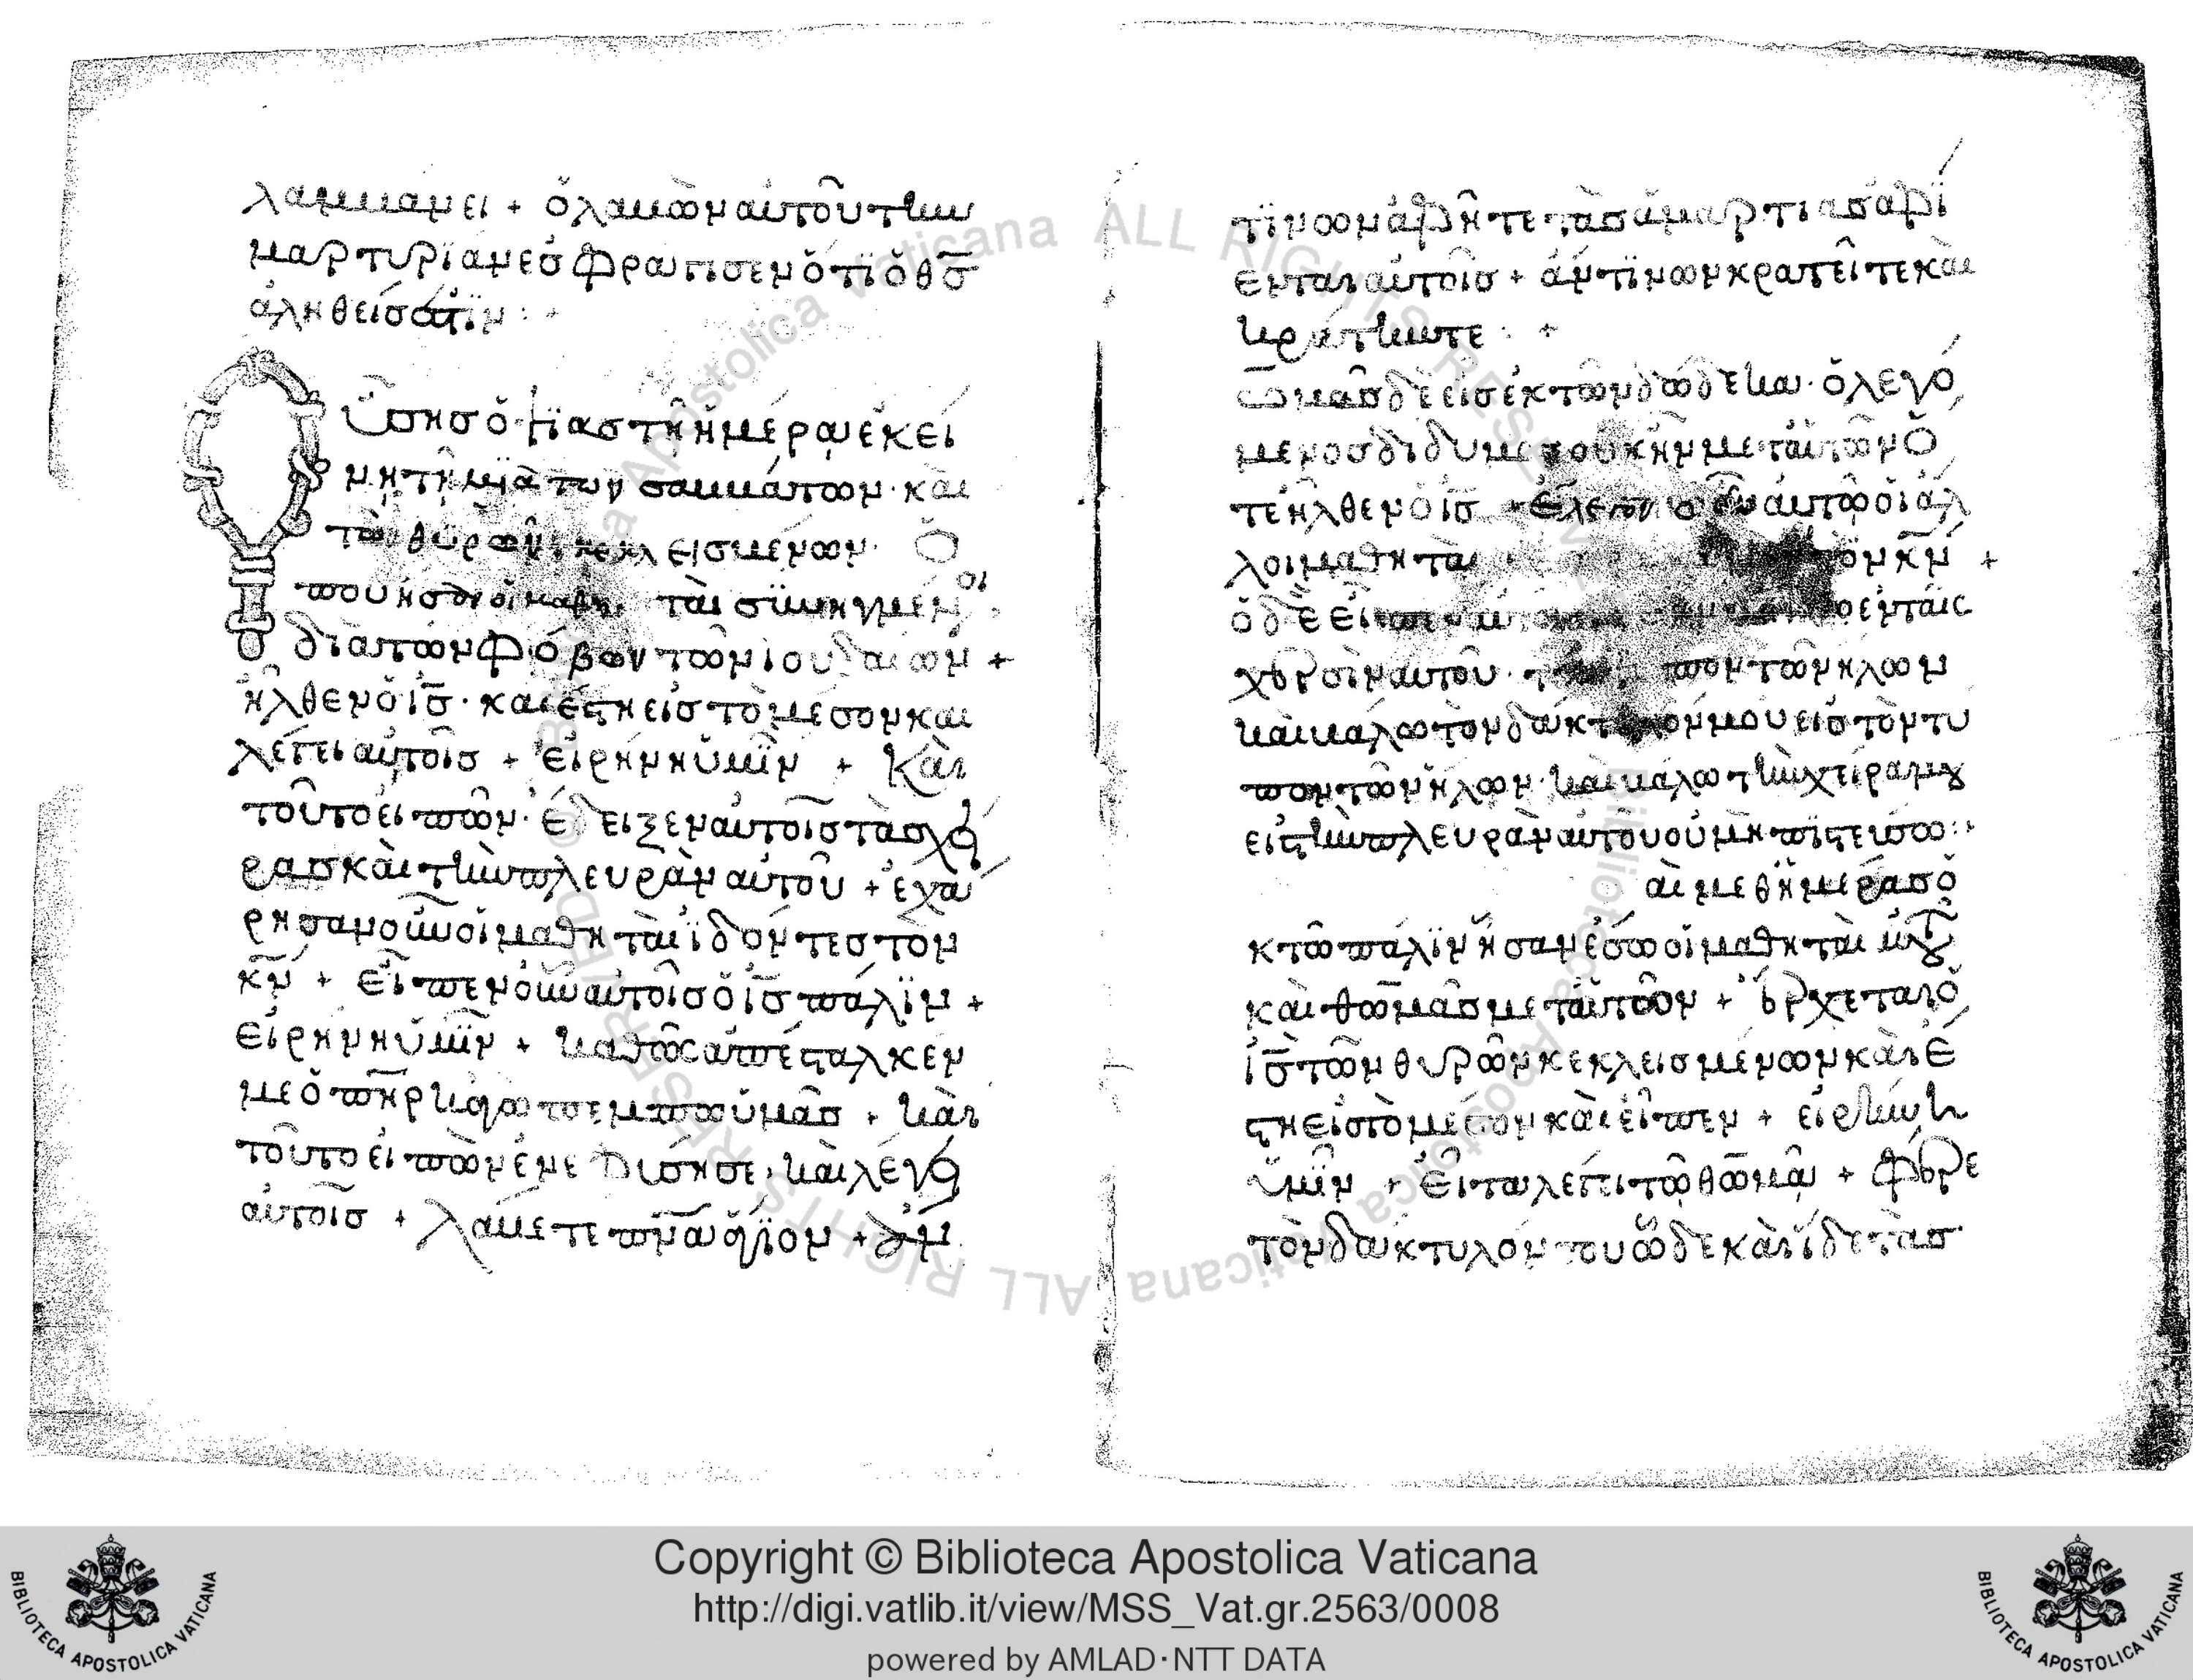 λαμβανει + ὁ λαβὼν αὐτοῦ τὴν
μαρτυρίαν ἐσφράγισεν ὅτι ὁ θς
ἀληθεὶς ἐστϊν : +
Οὔσης ὀψίας τῆ ἡμέρα ἐκεί
νη τῆ μϊὰ τῶν σαββάτων · καὶ
τῶν θυρῶν κεκλεισμένων · ὅ
που ἦσαν οἱ μαθηταὶ συνηγμένοι
διὰ τὸν φόβον τῶν ιουδαίων +
ἦλθεν ὁ ις · και ἔστη εἰς τὸ μέσον και
λέγει αὐτοῖς + Εἰρήνη ὑμῖν + Καὶ
τοῦτο εἰπὼν · ἔδειξεν αὐτοῖς τὰς χεῖ
ρας καὶ τὴν πλευρὰν αὐτοῦ + ἐχά
ρησαν οὖν οἱ μαθηταὶ ϊδόντες τὸν
κν + εἶπεν οὖν αὐτοῖς ὁ ις πάλϊν +
εἰρήνη ὑμῖν + καθὼς ἀπέσταλκεν
με ὁ πηρ κἀγὼ πέμπω ὑμᾶς + καὶ
τοῦτο εἰπὼν ἐνεφύσησε · καὶ λέγει
αὐτοῖς + λάβετε πνα ἅγϊον + ἄν
τϊνων ἀφῆτε τὰς ἁμαρτιας ἀφϊ
ενται αὐτοῖς + ἄν τϊνων κρατεῖτε κε
κράτηντε : +
Θωμᾶς δὲ εἷς ἐκ τῶν δώδεκα · ὁ λεγό
μενος δίδυμος οὐκ ἦν μεταὐτῶν ὅ
τε ἦλθεν ὁ ις + Ἔλεγον οὖν αὐτῶ οἱ ἄλ
λοι μαθηταὶ τὸν κν +
ὁ δὲ εἶπεν ἐν ταῖς
χερσὶν αὐτοῦ τὸν τύπον τῶν ηλων
καὶ βάλω τὸν δάκτυλόν μου εἰς τὸν τύ
πον τῶν ἥλων · καὶ βάλω τὴν χεῖρα μου
εἰς τὴν πλευρὰν αὐτοῦ οὐ μὴ πϊστεύσω :
αὶ μεθ ἡμέρας ὀ
κτὼ πάλϊν ἦσαν ἔσω οἱ μαθηταὶ αὐτοῦ
καὶ θωμᾶς μεταὐτῶν + ἔρχεται ὁ
ις τῶν θυρῶν κεκλεισμένων καὶ ἔ
στη εἰς τὸ μέσον καὶ εἶπεν + εἰρήνη
ὑμῖν + Εἶτα λέγει τῶ θωμᾶ + φέρε
τὸν δάκτυλόν σου ὧδε καὶ ἴδε τὰς
Copyright © Biblioteca Apostolica Vaticana
http://digi.vatlib.it/view/MSS_Vat.gr.2563/0008
powered by AMLAD·NTT DATA
BIBLIOTECA APOSTOLICA VATICANA
BIBLIOTECA APOSTOLICA VATICANA